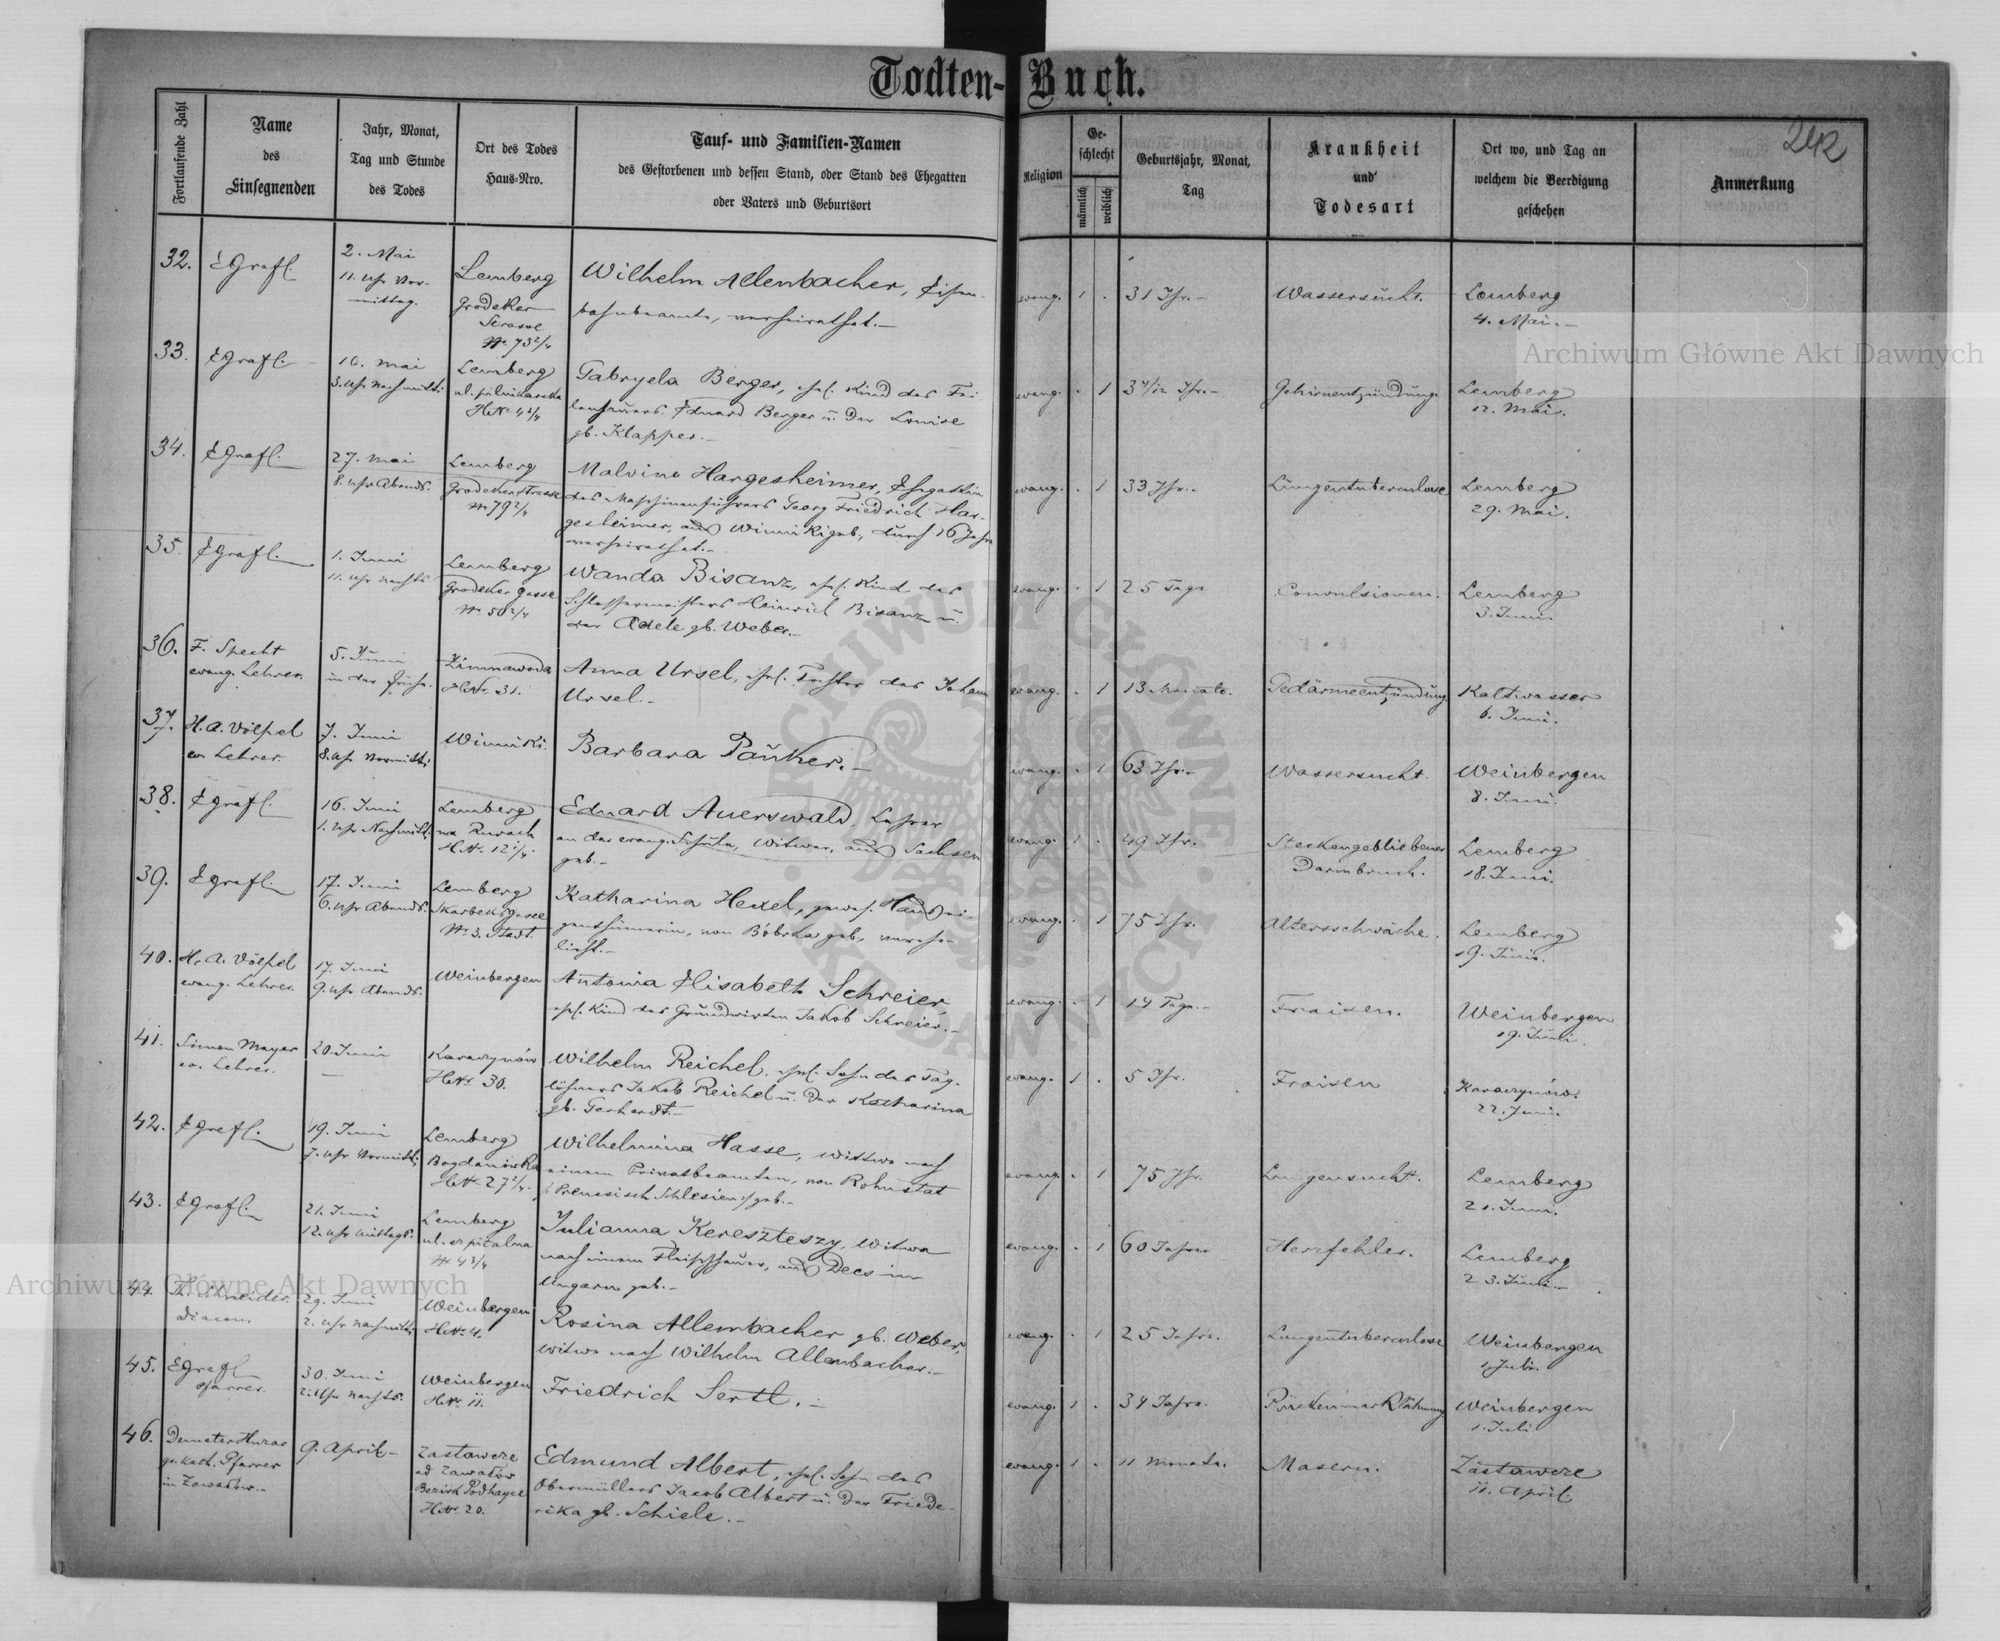 Todten-Buch.
242
Fortlaufende Zahl
Name
des
Einsegnenden
Jahr, Monat,
Tag und Stunde
des Todes
Ort des Todes
Haus-Nro.
Tauf- und Familien-Namen
des Gestorbenen und dessen Stand, oder Stand des Ehegatten
oder Vaters und Geburtsort
Religion
Ge-
schlecht
männlich
weiblich
Geburtsjahr, Monat,
Tag
Krankheit
und
Todesart
Ort wo, und Tag an
welchem die Beerdigung
geschehen
Anmerkung
32. EGrafl.
2. Mai
11. Uhr Vor-
mittag.
Lemberg
Grodeker
Strasse
№ 73 2/4
Wilhelm Allenbacher, Eisen-
bahnbeamte, verheirathet.
evang. 1 . 31 Jhr. Wassersucht. Lemberg
4. Mai.
33. EGrafl.
10. Mai
3. Uhr Nachmitt.
Lemberg
Gabryela Berger, ehel. Kind des
Eduard Berger u. der Louise
gb. Klapper.
evang. . 1 3 Jhr. Gehirnentzündung Lemberg
12. Mai.
34. EGrafl.
27. Mai
8. Uhr Abends.
Lemberg
Grodeker strasse
№ 79 2/4
Malvina Hargesheimer, Ehegattin
des Maschinenführers Georg Friedrich Har-
gesheimer, aus Winniki geb., durch 16 Jahre
verheirathet.
evang. . 1 33 Jhr. Lungentuberculose Lemberg
29. Mai.
35. EGrafl.
1. Juni
11. Uhr Nachts
Lemberg
Grodeker gasse
№ 50 2/4
Wanda Bisanz, ehel. Kind des
Schlossermeisters Heinrich Bisanz u.
der Adele gb. Weber.
evang. . 1 25 Tage Convulsionen. Lemberg
3. Juni.
36. F. Specht
evang. Lehrer.
5. Juni
in der Frühe.
Zimnawoda
H№ 31.
Anna Ursel, ehel. Tochter des Johann
Ursel.
evang. . 1 13 Monate. Gedärmeentzündung Kaltwasser
6. Juni.
37. H. A. Völpel
ev. Lehrer.
7. Juni
8. Uhr Vormitt.
Winniki.
Barbara Pauker.
evang. . 1 63 Jhr. Wassersucht. Weinbergen
8. Juni.
38. EGrafl.
16. Juni
1. Uhr Nachmitt.
Lemberg
na Rurach
H№ 12
Eduard Auerswald, Lehrer
an der evang. Schule, Witwer, aus Sachsen
geb.
evang. 1 . 49 Jhr. Steckengebliebener
Darmbruch.
Lemberg
18. Juni.
39. EGrafl.
17. Juni
6. Uhr Abends.
Lemberg
Skarbeks gasse
№ 3. Stadt.
Katharina Hexel, gewes. Hausei-
genthümerin, von Bóbrka geb., vereh-
licht.
evang. . 1 75 Jhr. Altersschwäche. Lemberg
19. Juni.
40. H. A. Völpel
evang. Lehrer.
17. Juni
9. Uhr Abends.
Weinbergen
Antonia Elisabeth Schreier,
ehel. Kind des Grundwirten Jakob Schreier.
evang. . 1 14 Tage. Fraisen. Weinbergen
19. Juni.
41. Simon Mayer
ev. Lehrer.
20. Juni
Karaczynów
H№ 30.
Wilhelm Reichel, ehel. Sohn des Tag-
löhners Jakob Reichel u. der Katharina
gb. Gerhardt.
evang. 1 . 5 Jhr. Fraisen Karaczynów.
22. Juni.
42. EGrefl.
19. Juni
7. Uhr Vormitt.
Lemberg
Bogdanówka
H№ 27
Wilhelmina Hasse, Wittwe nach
einem Privatbeamten, von Rohnstat
/: Preussisch Schlesien :/ geb.
evang. . 1 75 Jhr. Lungensucht. Lemberg
21. Juni.
43. EGrafl.
21. Juni
12. Uhr Mittags.
Lemberg
ul. szpitalna
№ 4 3/4
Julianna Kereszteszy, Witwe
nach einem Fleischhauer, aus Dees in
Ungarn geb.
evang. . 1 60 Jahre. Herzfehler. Lemberg
23. Juni.
44. Schneider.
Diacon.
29. Juni
2. Uhr Nachmitt.
Weinbergen
H№ 4.
Rosina Allenbacher gb. Weber,
Witwe nach Wilhelm Allenbacher.
evang. . 1 25 Jahre. Lungentuberculose Weinbergen
1. Juli.
45. EGrefl
Pfarrer.
30. Juni
2. Uhr Nachts.
Weinbergen
H№ 11.
Friedrich Sertl.
evang. 1 . 34 Jahre. Rückenmark Lähmung Weinbergen
1. Juli
46. Demeter Huzar
gr. kath. Pfarrer
in Zawałow.
9. April
Zastawcze
ad Zawałów
Bezirk Podhayce
H№ 20.
Edmund Albert, ehel. Sohn des
Obermüllers Jacob Albert u. der Friede-
rika gb. Schiele.
evang. 1 . 11 Monate. Masern. Zastawcze
11. April.
Archiwum Główne Akt Dawnych
Archiwum Główne Akt Dawnych
ARCHIWUM GŁÓWNE AKT DAWNYCH